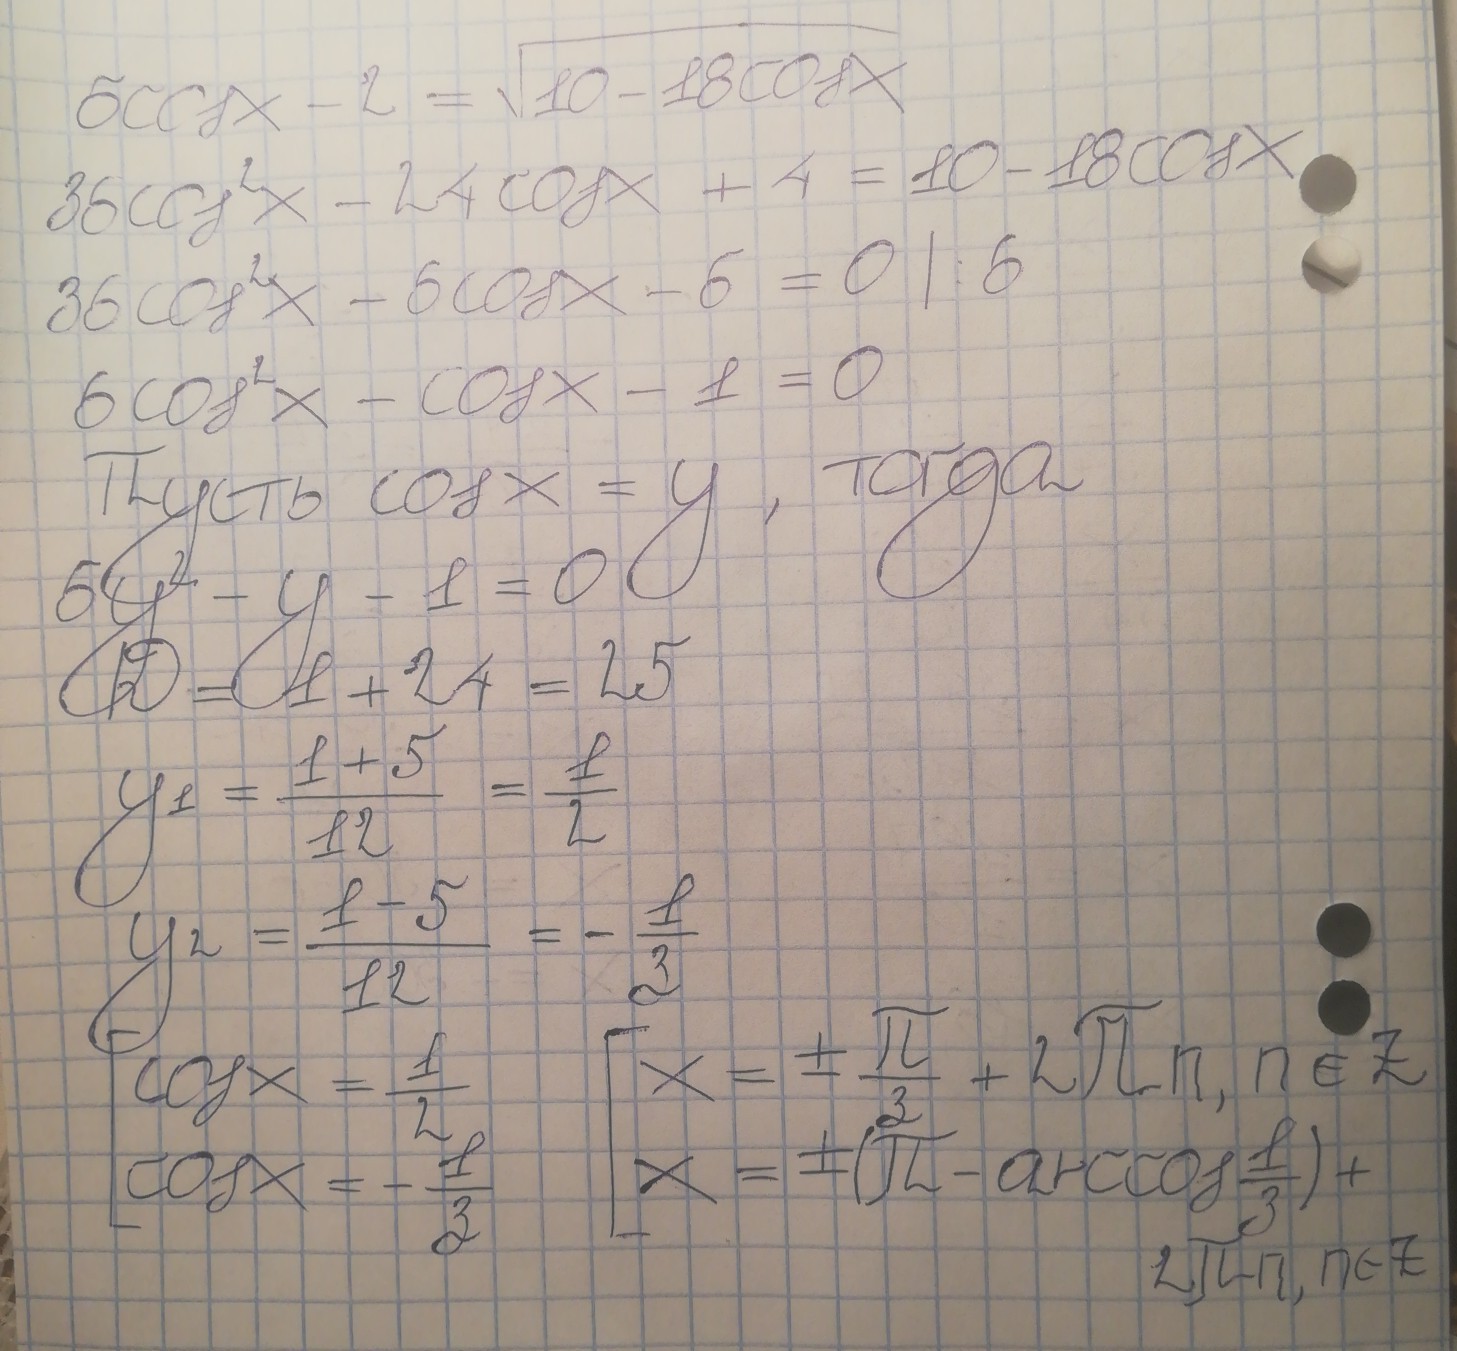 6cosx - 2 = √10 - 18cosx
36cos²x - 24cosx + 4 = 10 - 18cosx
36cos²x - 6cosx - 6 = 0 |:6
6cos²x - cosx - 1 = 0
Пусть cosx = y, тогда
6y² - y - 1 = 0
D = 1 + 24 = 25
y1 = (1+5)/12 = 1/2
y2 = (1-5)/12 = -1/3
[cosx = 1/2 [x = ± π/3 + 2πn, n∈Z
cosx = -1/3 x = ±(π - arccos 1/3) +
2πn, n∈Z